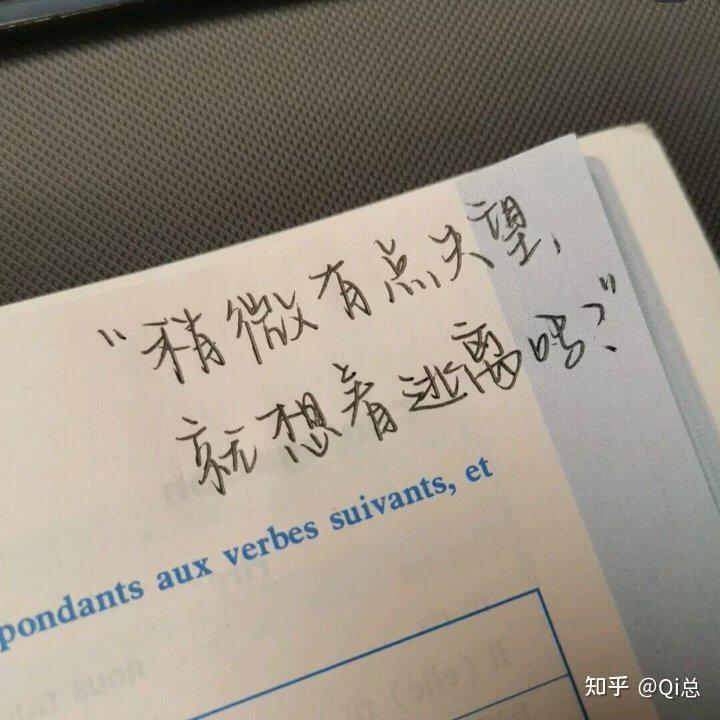 “稍微有点失望、
就想着逃离吗？”
pondants aux verbes suivants, et
知乎 @Qi总